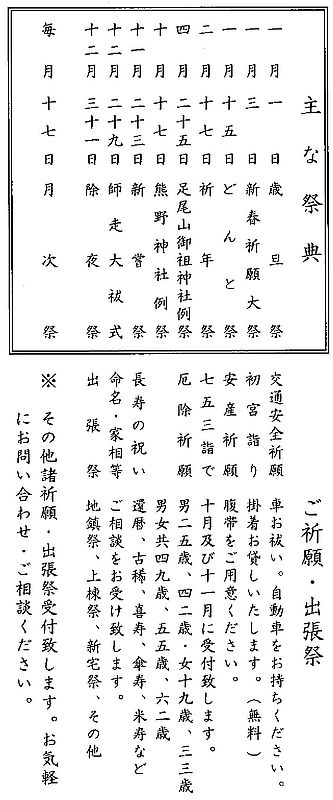 主な祭典
一月一日歳旦祭
一月三日新春祈願大祭
一月十五日どんと祭
二月十七日祈年祭
四月二十五日足尾山御祖神社例祭
十月十七日熊野神社例祭
十一月二十三日新嘗祭
十二月二十九日師走大祓式
十二月三十一日除夜祭
毎月十七日月次祭
ご祈願・出張祭
交通安全祈願 車お祓い。自動車をお持ちください。
初宮詣り 掛着お貸しいたします。(無料)
安産祈願 腹帯をご用意ください。
七五三詣で 十月及び十一月に受付致します。
厄除祈願 男二五歳、四二歳・女十九歳、三三歳
男女共四九歳、五五歳、六二歳
長寿の祝い 還暦、古稀、喜寿、傘寿、米寿など
命名・家相等 ご相談をお受け致します。
出張祭 地鎮祭、上棟祭、新宅祭、その他
※ その他諸祈願・出張祭受付致します。お気軽
にお問い合わせ・ご相談ください。